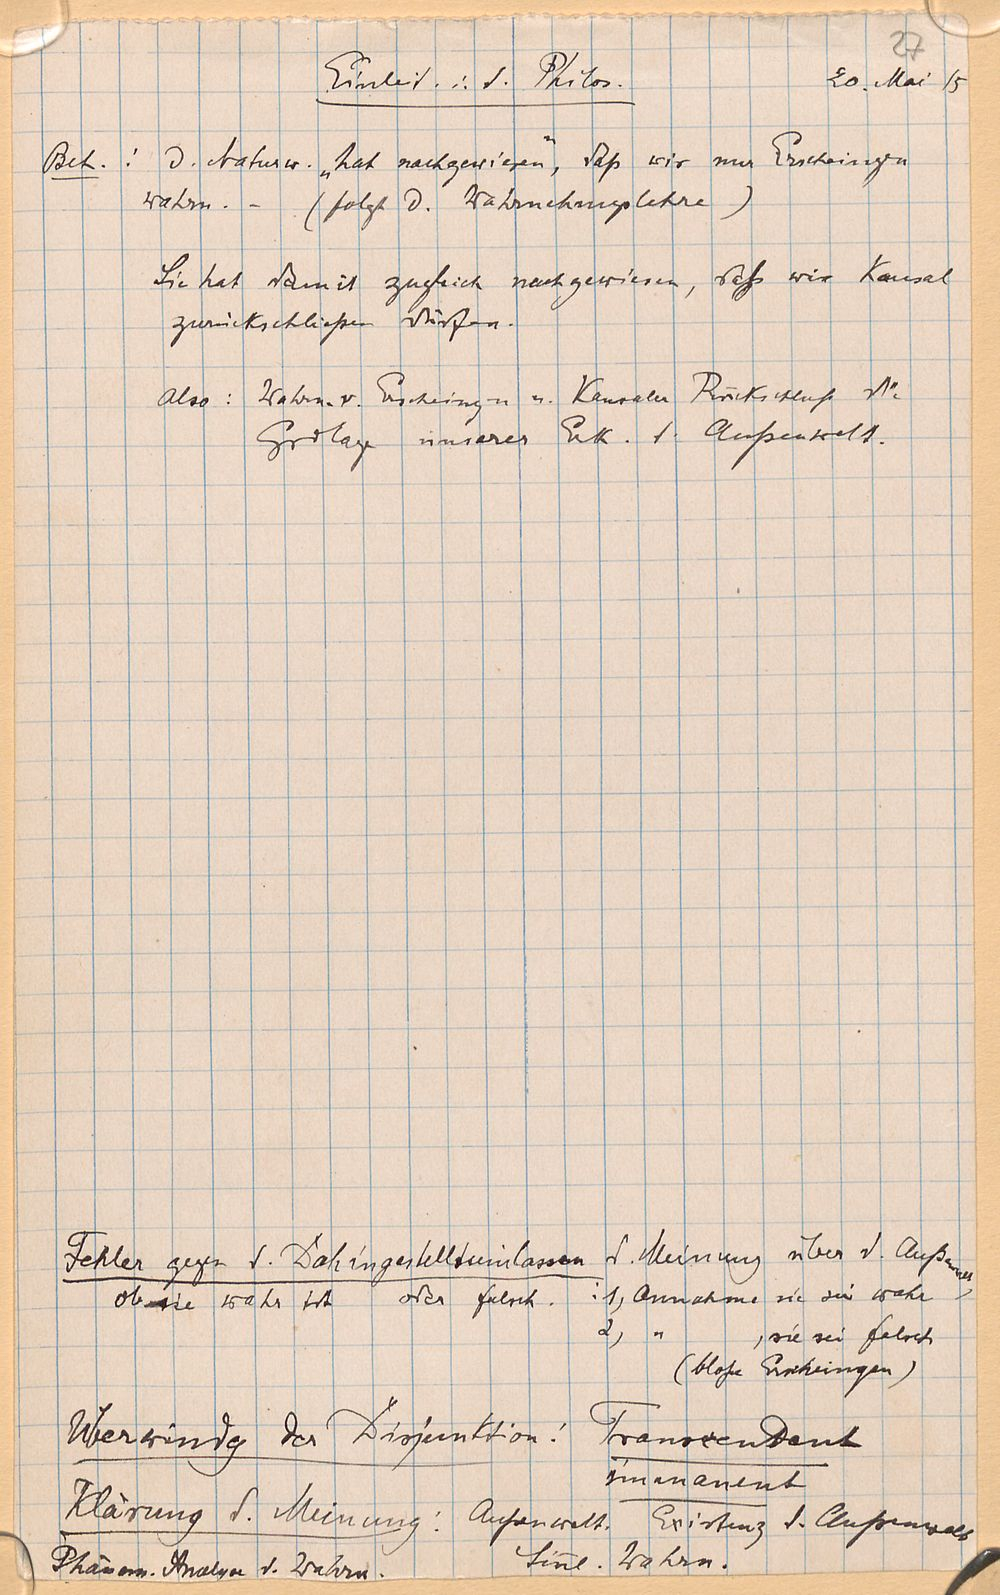 27
Einleit. i. d. Philos. 20. Mai 15
Beh.: D. Naturw. „hat nachgewiesen", daß wir nur Erscheingen
wahrn. - (folgt d. Wahrnehmungslehre)
Sie hat damit zugleich nachgewiesen, daß wir kausal
zurückschließen dürfen.
Also: Wahrn. v. Erscheingen u. kausaler Rückschluß die
Grdlage unserer Erk. d. Außenwelt.
Fehler gegen d. Dahingestelltseinlassen d. Meinung über d.
ob sie wahr ist oder falsch. : 1, Annahme sie sei wahr
2, " , sie sei falsch
(bloße Erscheingen)
Überwindg der Disjunktion: Transzendent
immanent
Klärung d. Meinung: Außenwelt. Existenz d. Außenwelt
Phänom. Analyse d. Wahrn. Sinnl. Wahrn.